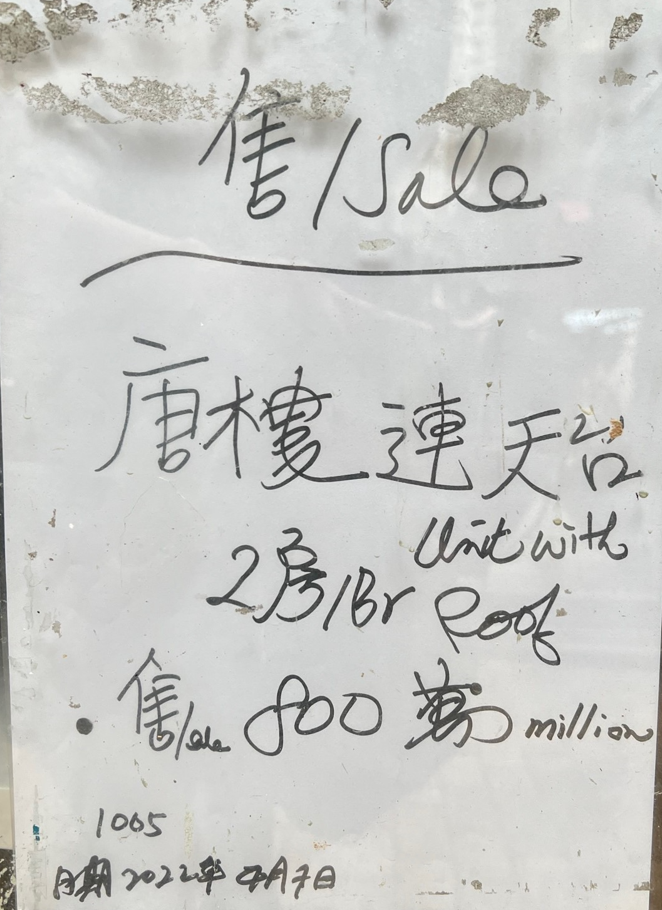 售/Sale
唐樓連天台
2房/Br Unit with
Roof
售/sale 800萬 million
1005
日期 2022年 4月7日